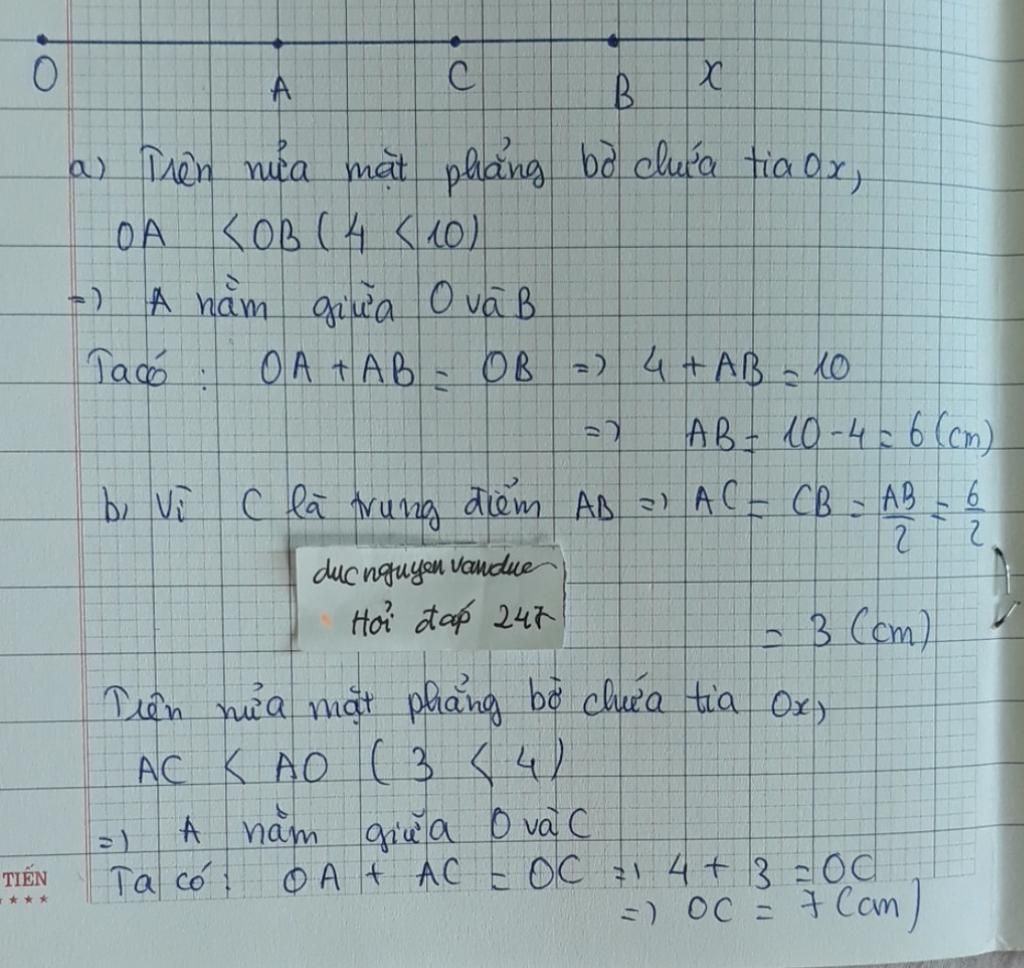 O A C B x
a) Trên nửa mặt phẳng bờ chứa tia Ox,
OA < OB ( 4 < 10)
=> A nằm giữa O và B
Ta có : OA + AB = OB => 4 + AB = 10
=> AB = 10 - 4 = 6 (cm)
b, Vì C là trung điểm AB => AC = CB = AB/2 = 6/2
ducnguyenvanduc
Hỏi đáp 247
= 3 (cm)
Trên nửa mặt phẳng bờ chứa tia Ox,
AC < AO ( 3 < 4)
=> A nằm giữa O và C
TIẾN
Ta có: OA + AC = OC => 4 + 3 = OC
=> OC = 7 (cm)